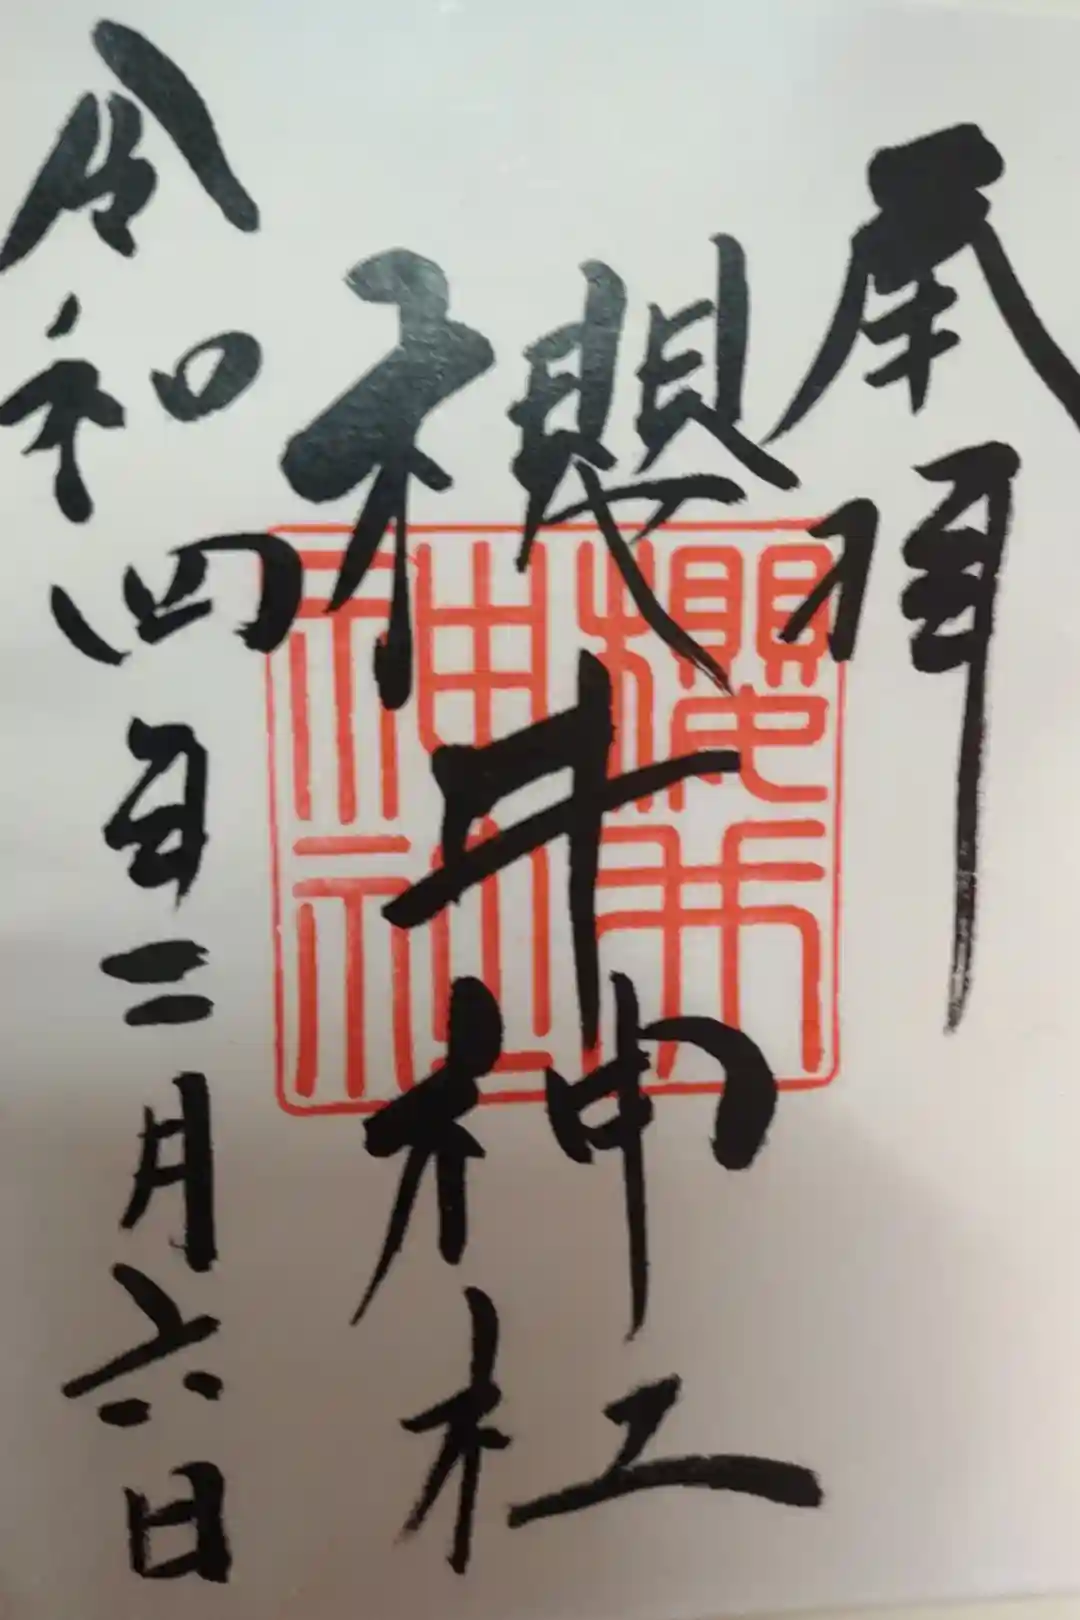 奉拝
櫻井神社
櫻井
神社
令和四年二月六日